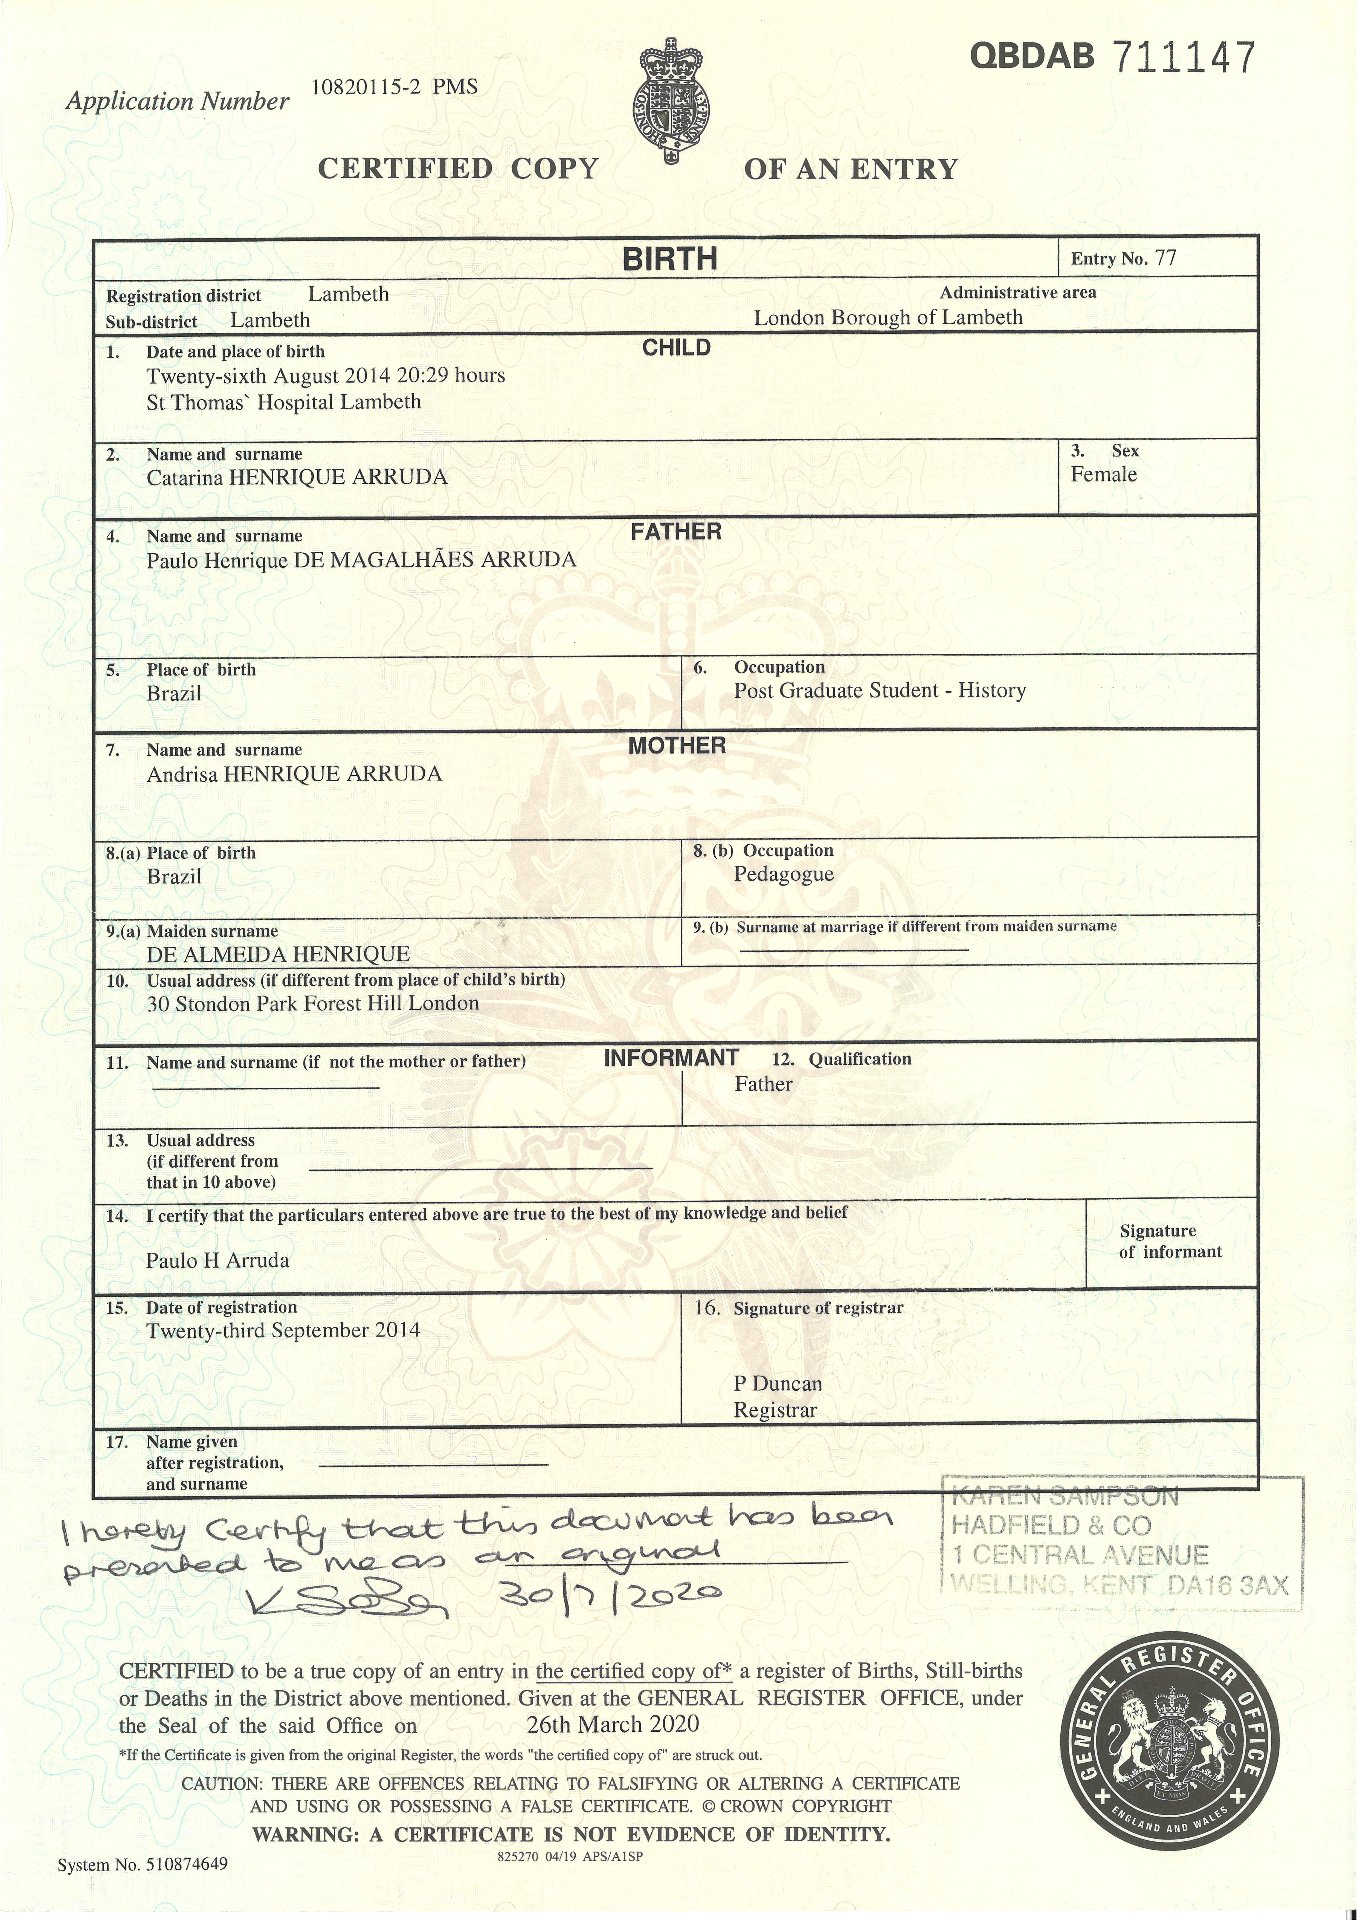 QBDAB 711147
Application Number 10820115-2 PMS
HONI SOIT Y PENSE
CERTIFIED COPY OF AN ENTRY
BIRTH Entry No. 77
Registration district Lambeth Administrative area
Sub-district Lambeth London Borough of Lambeth
CHILD
1. Date and place of birth
Twenty-sixth August 2014 20:29 hours
St Thomas` Hospital Lambeth
2. Name and surname 3. Sex
Catarina HENRIQUE ARRUDA Female
FATHER
4. Name and surname
Paulo Henrique DE MAGALHÃES ARRUDA
5. Place of birth 6. Occupation
Brazil Post Graduate Student - History
MOTHER
7. Name and surname
Andrisa HENRIQUE ARRUDA
8.(a) Place of birth 8. (b) Occupation
Brazil Pedagogue
9.(a) Maiden surname 9. (b) Surname at marriage if different from maiden surname
DE ALMEIDA HENRIQUE
10. Usual address (if different from place of child's birth)
30 Stondon Park Forest Hill London
INFORMANT
11. Name and surname (if not the mother or father) 12. Qualification
Father
13. Usual address
(if different from
that in 10 above)
14. I certify that the particulars entered above are true to the best of my knowledge and belief
Paulo H Arruda
Signature
of informant
15. Date of registration 16. Signature of registrar
Twenty-third September 2014
P Duncan
Registrar
17. Name given
after registration,
and surname
I hereby Certify that this document has been
presented to me as an original
30/7/2020
KAREN SAMPSON
HADFIELD & CO
1 CENTRAL AVENUE
WELLING, KENT DA16 3AX
CERTIFIED to be a true copy of an entry in the certified copy of* a register of Births, Still-births
or Deaths in the District above mentioned. Given at the GENERAL REGISTER OFFICE, under
the Seal of the said Office on 26th March 2020
*If the Certificate is given from the original Register, the words "the certified copy of" are struck out.
CAUTION: THERE ARE OFFENCES RELATING TO FALSIFYING OR ALTERING A CERTIFICATE
AND USING OR POSSESSING A FALSE CERTIFICATE. © CROWN COPYRIGHT
WARNING: A CERTIFICATE IS NOT EVIDENCE OF IDENTITY.
825270 04/19 APS/A1SP
System No. 510874649
GENERAL REGISTER OFFICE
ENGLAND AND WALES